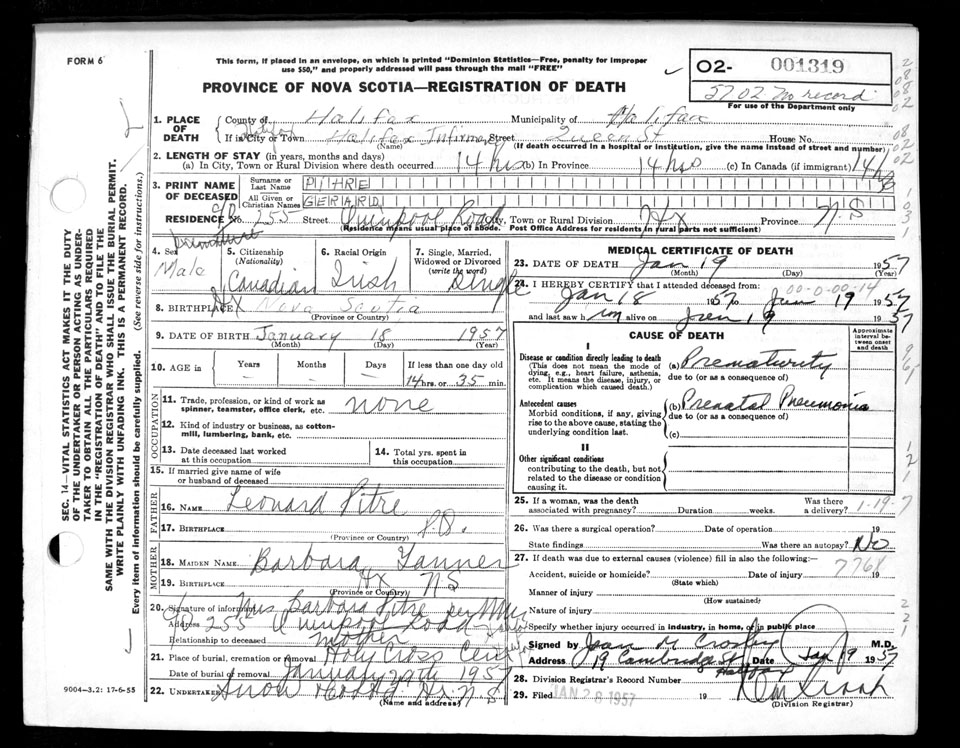 FORM 6
This form, if placed in an envelope, on which is printed "Dominion Statistics—Free, penalty for improper
use $50," and properly addressed will pass through the mail "FREE"
PROVINCE OF NOVA SCOTIA—REGISTRATION OF DEATH
O2- 001319
5702 No record
For use of the Department only
1. PLACE OF DEATH
County of Halifax Municipality of Halifax
If in City or Town Halifax Infirmary Street Queen St House No.
(Name) (If death occurred in a hospital or institution, give the name instead of street and number)
2. LENGTH OF STAY (in years, months and days)
(a) In City, Town or Rural Division where death occurred 14 hrs (b) In Province 14 hrs (c) In Canada (if immigrant) 14 hrs
3. PRINT NAME OF DECEASED
Surname or Last Name PITHRE
All Given or Christian Names GERARD
RESIDENCE No. 255 Street Quinpool Road City, Town or Rural Division Hx Province N.S
(Residence means usual place of abode. Post Office Address for residents in rural parts not sufficient)
4. Sex Male
5. Citizenship (Nationality) Canadian
6. Racial Origin Irish
7. Single, Married, Widowed or Divorced (write the word) Single
8. BIRTHPLACE Hx Nova Scotia
(Province or Country)
9. DATE OF BIRTH January 18 1957
(Month) (Day) (Year)
10. AGE in Years Months Days If less than one day old
– – – 14 hrs. or 35 min.
OCCUPATION
11. Trade, profession, or kind of work as spinner, teamster, office clerk, etc. none
12. Kind of industry or business, as cotton-mill, lumbering, bank, etc.
13. Date deceased last worked at this occupation
14. Total yrs. spent in this occupation
15. If married give name of wife or husband of deceased
FATHER
16. NAME Leonard Pitre
17. BIRTHPLACE
(Province or Country)
MOTHER
18. MAIDEN NAME Barbara Tanner
19. BIRTHPLACE Hx NS
(Province or Country)
20. Signature of informant Mrs Barbara Pitre
Address 255 Quinpool Road
Relationship to deceased mother
21. Place of burial, cremation or removal Holy Cross
Date of burial or removal January 1957
22. UNDERTAKER Snow Hx N.S
(Name and address)
MEDICAL CERTIFICATE OF DEATH
23. DATE OF DEATH Jan 19 1957
(Month) (Day) (Year)
00-0-00-14
24. I HEREBY CERTIFY that I attended deceased from:
Jan 18 1957 to Jan 19 1957
and last saw him alive on Jan 19 1957
CAUSE OF DEATH
Approximate interval between onset and death
I
Disease or condition directly leading to death (a) Prematurity
(This does not mean the mode of dying, e.g., heart failure, asthenia, etc. It means the disease, injury, or complication which caused death.)
due to (or as a consequence of)
Antecedent causes (b) Prenatal Pneumonia
Morbid conditions, if any, giving rise to the above cause, stating the underlying condition last.
due to (or as a consequence of)
(c)
II
Other significant conditions
contributing to the death, but not related to the disease or condition causing it.
25. If a woman, was the death associated with pregnancy? Duration weeks. Was there a delivery?
1-19-7
26. Was there a surgical operation? Date of operation 19
State findings Was there an autopsy? No
27. If death was due to external causes (violence) fill in also the following:—
Accident, suicide or homicide? Date of injury 19
(State which)
7768
Manner of injury
(How sustained)
Nature of injury
Specify whether injury occurred in industry, in home, or in public place
Signed by Joan M Crosby M.D.
Address 19 Cambridge St Halifax Date Jan 19 1957
28. Division Registrar's Record Number
29. Filed JAN 28 1957 19
(Division Registrar)
SEC. 14—VITAL STATISTICS ACT MAKES IT THE DUTY
OF THE UNDERTAKER OR PERSON ACTING AS UNDER-
TAKER TO OBTAIN ALL THE PARTICULARS REQUIRED
IN THE "REGISTRATION OF DEATH" AND TO FILE THE
SAME WITH THE DIVISION REGISTRAR WHO SHALL ISSUE THE BURIAL PERMIT.
WRITE PLAINLY WITH UNFADING INK. THIS IS A PERMANENT RECORD.
Every item of information should be carefully supplied. (See reverse side for instructions.)
9004-3.2: 17-6-55